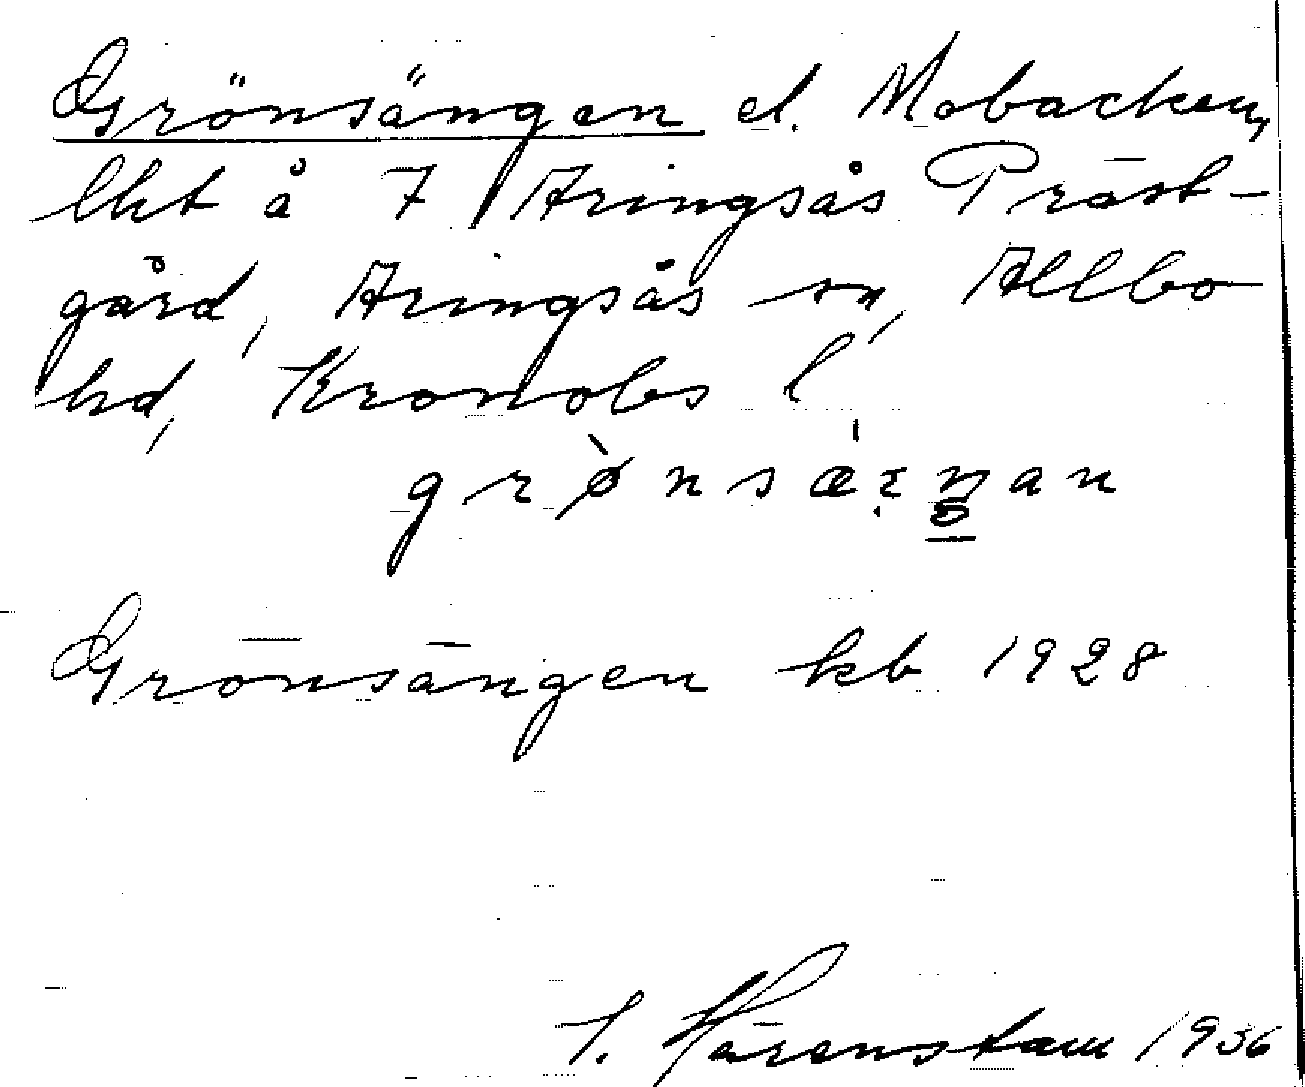 Grönsängen el. Mobacken,
lht å 7 Aringsås Präst-
gård, Aringsås sn, Allbo
hd, Kronobs l
grø̀nsæ̀ŋan
Grönsängen kb 1928
Härenstam 1936